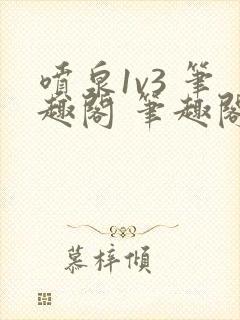 噴泉1v3 筆
趣閣 筆趣閣
慕梓傾